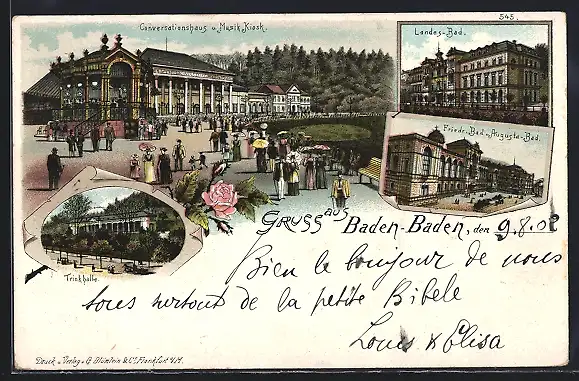 545.
Conversationshaus u. Musik-Kiosk.
Landes-Bad.
Friedr.-Bad u. Augusta-Bad.
Trinkhalle.
Gruss aus Baden-Baden, den 9.8.02
Bien le bonjour de nous
tous surtout de la petite Bibele
Louis & Elisa
Druck u. Verlag v. G. Blümlein & Co. Frankfurt a/M.